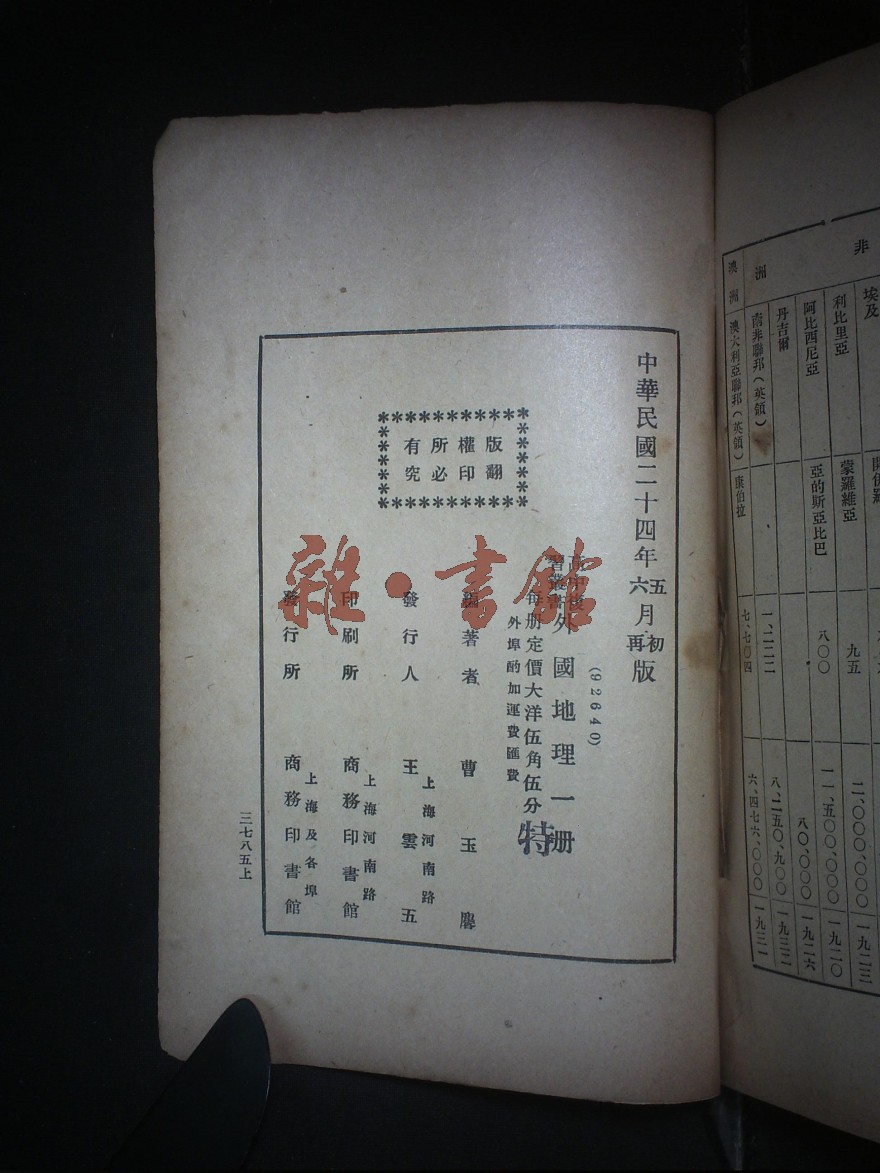 中華民國二十四年五月初版
六再
(92640)
高中複習叢書
外國地理一册
每册定價大洋伍角伍分
特
外埠酌加運費匯費
版權所有
翻印必究
編著者 曹玉麐
發行人 王雲五
上海河南路
印刷所 商務印書館
上海河南路
發行所 商務印書館
上海及各埠
三七八五上
雜·書館
非
洲
埃及
利比里亞 蒙羅維亞 九五 一九二〇
阿比西尼亞 亞的斯亞比巴 八〇〇 一九二六
丹吉爾
南非聯邦(英領) 一、二二二
澳洲 澳大利亞聯邦(英領) 康伯拉 七、七〇四 六、四七六、〇〇〇 一九三一